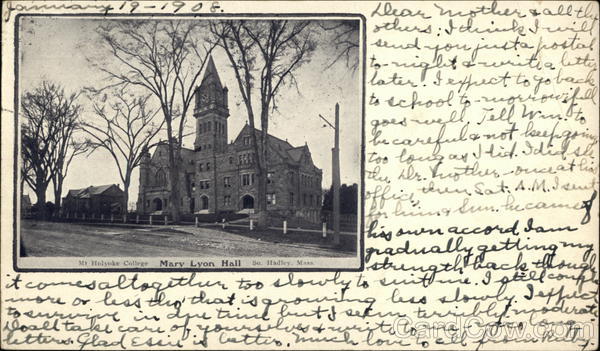 January 19 - 1908
Dear Mother & all the
others: I think I will
send you just a postal
to-night & write a letter
later. I expect to go back
to school to-morrow if all
goes well. Tell Win to
be careful & not keep going
too long as I did. I did
the Dr. Mother - once at his
office then Sat. A.M. I sent
for him & Sun. he came of
his own accord. I am
gradually getting my
strength back though
it comes altogether too slowly to suit me. I still cough
more or less tho that is growing less slowly. I expect
to survive in due time but I seem terribly
Do all take care of yourselves & write to me
letters. Glad Essie is better. Much love to all
Mt Holyoke College Mary Lyon Hall So. Hadley, Mass.
CardCow.com